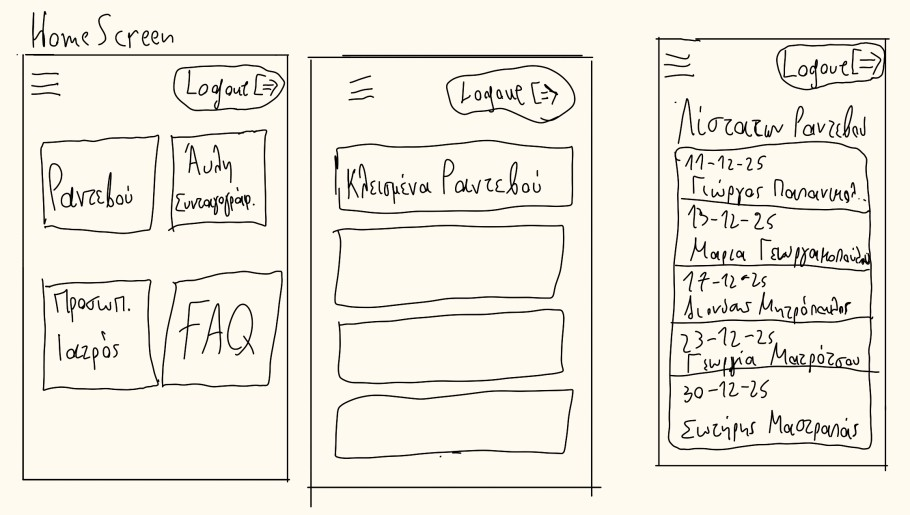 Home Screen
Logout
Ραντεβού
Άυλη
Συνταγογράφ.
Προσωπ.
Ιατρός
FAQ
Logout
Κλεισμένα Ραντεβού
Logout
Λίστα των Ραντεβού
11-12-25
Γιώργος Παπανικολ..
13-12-25
Μαρια Γεωργακοπούλου
17-12-25
Διονύσης Μητρόπουλος
23-12-25
Γεωργία
30-12-25
Σωτήρης